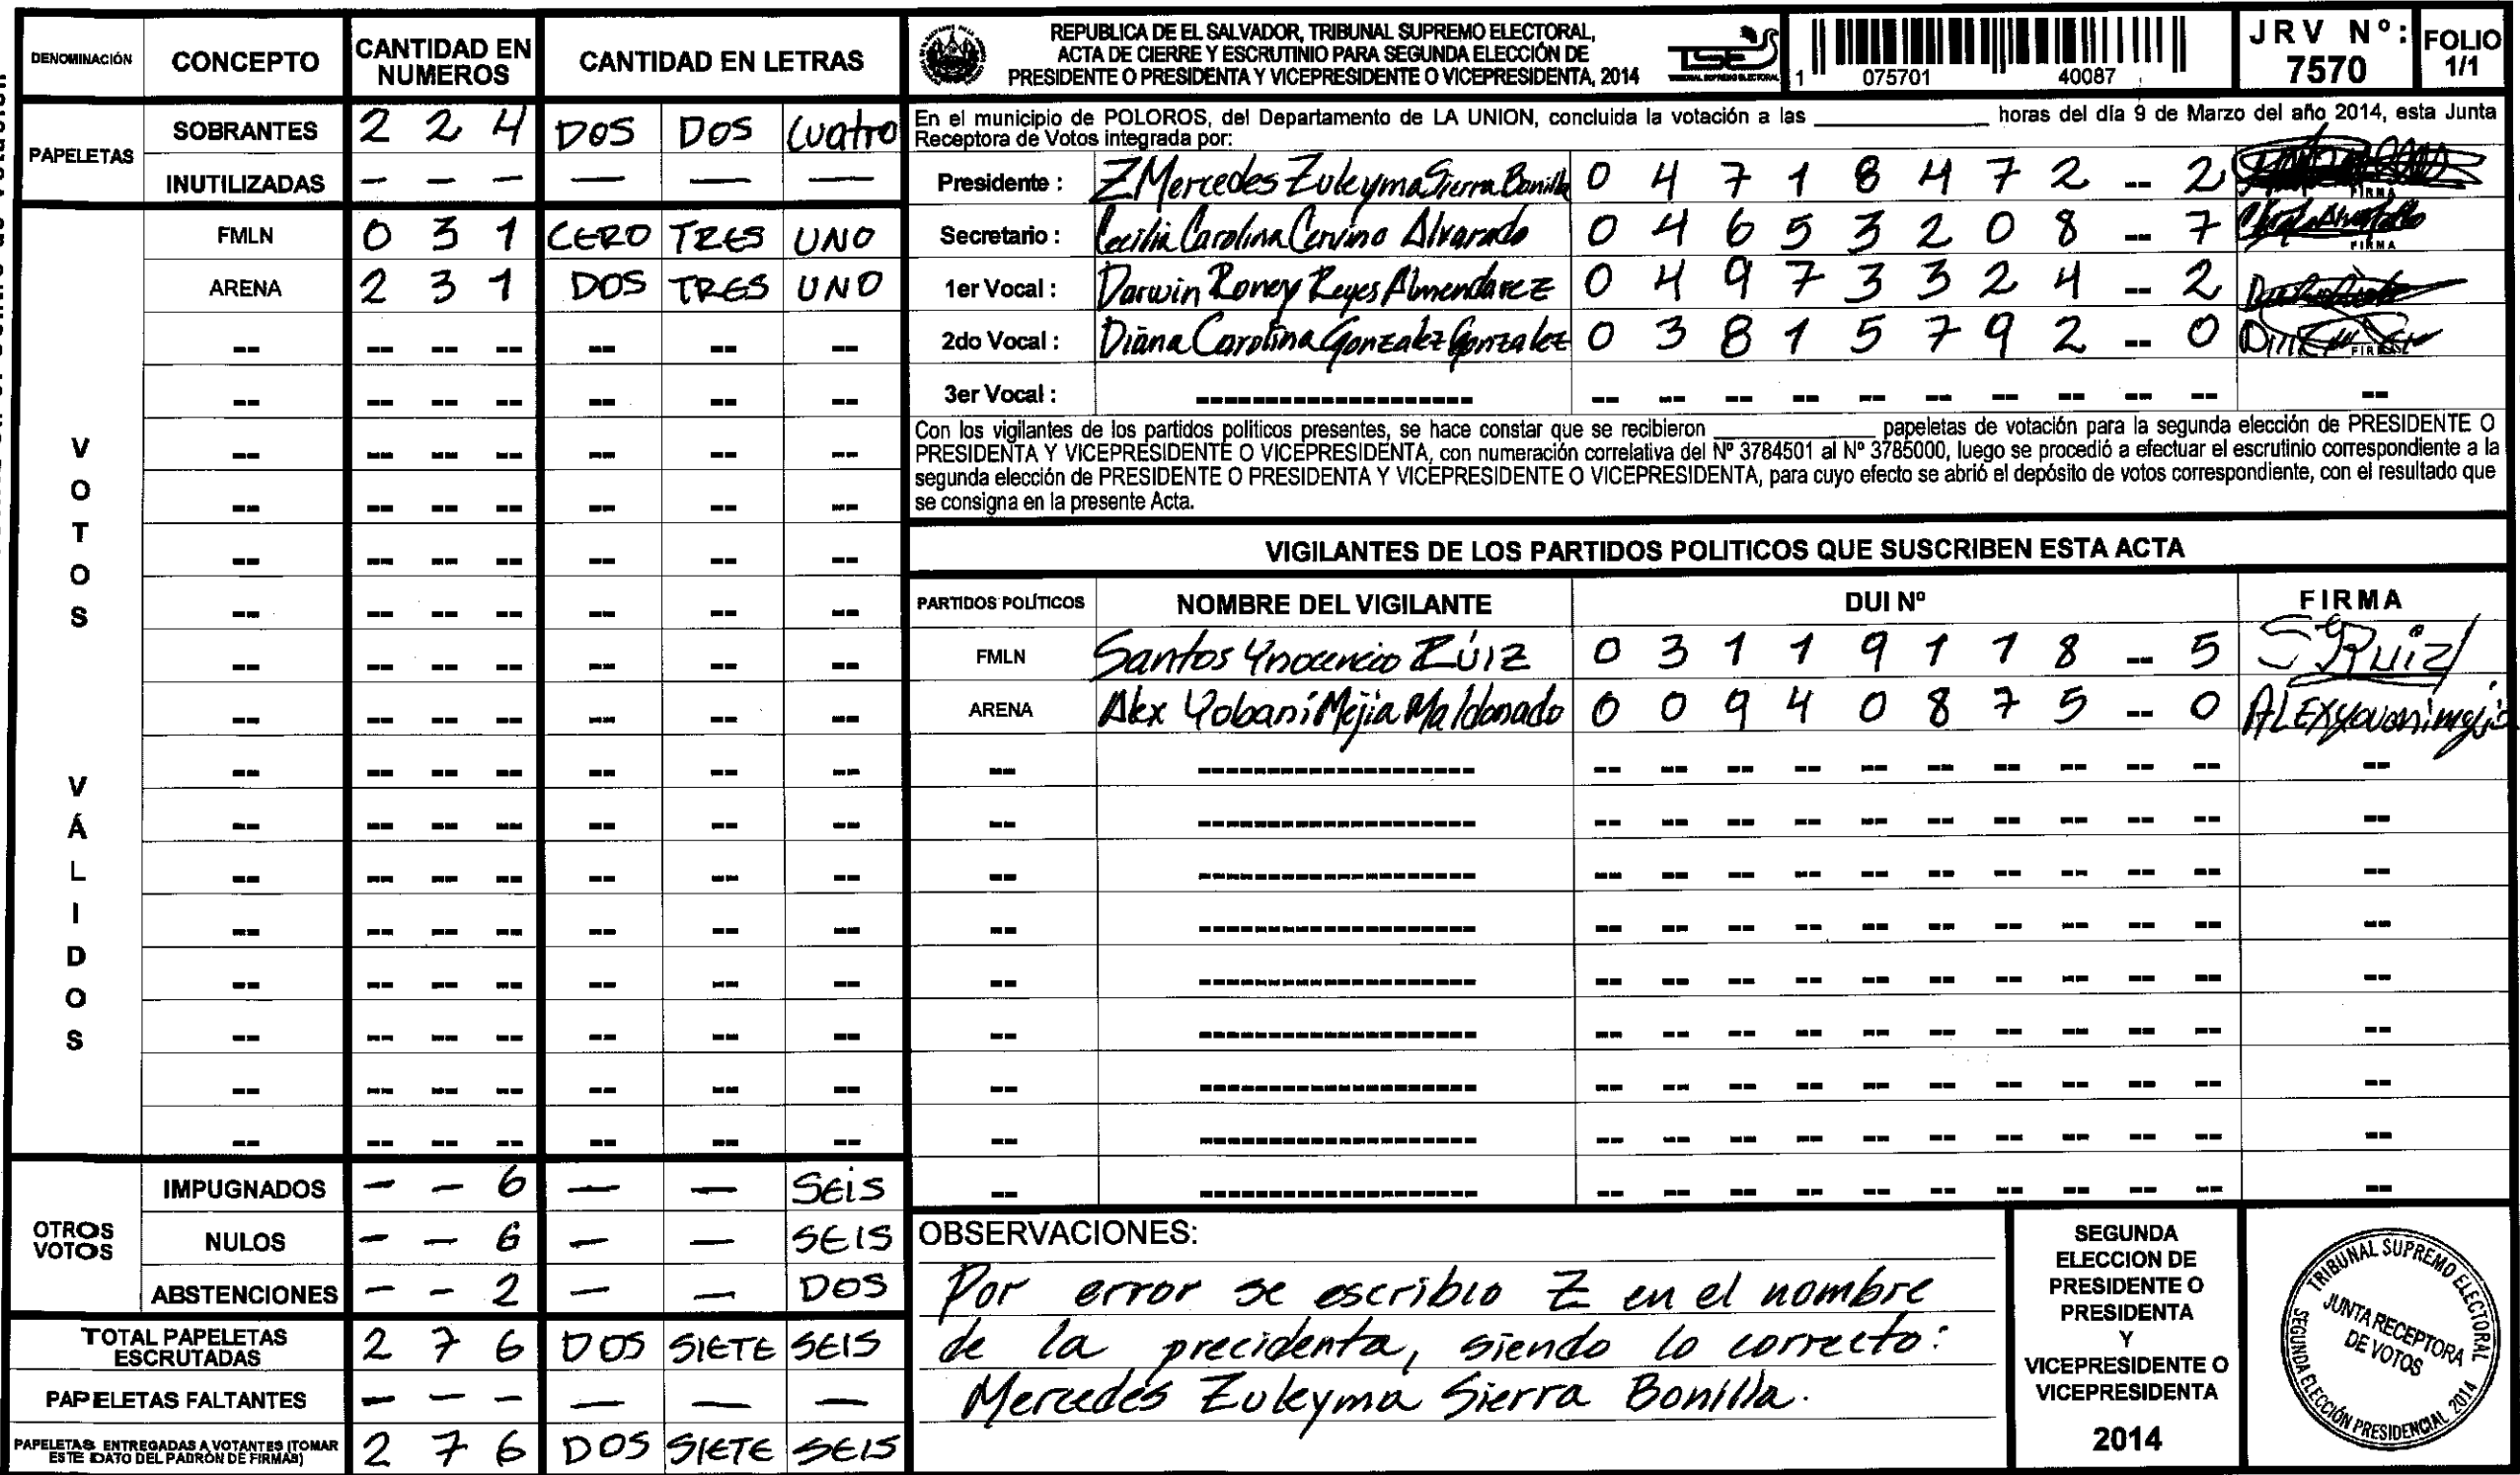 DENOMINACIÓN CONCEPTO CANTIDAD EN NUMEROS CANTIDAD EN LETRAS
PAPELETAS
SOBRANTES 2 2 4 DOS DOS Cuatro
INUTILIZADAS — — — — — —
VOTOS VÁLIDOS
FMLN 0 3 1 CERO TRES UNO
ARENA 2 3 1 DOS TRES UNO
OTROS VOTOS
IMPUGNADOS - - 6 — — SEIS
NULOS - - 6 — — SEIS
ABSTENCIONES - - 2 — — DOS
TOTAL PAPELETAS ESCRUTADAS 2 7 6 DOS SIETE SEIS
PAPELETAS FALTANTES — — — — — —
PAPELETAS ENTREGADAS A VOTANTES (TOMAR ESTE DATO DEL PADRÓN DE FIRMAS) 2 7 6 DOS SIETE SEIS
REPUBLICA DE EL SALVADOR, TRIBUNAL SUPREMO ELECTORAL,
ACTA DE CIERRE Y ESCRUTINIO PARA SEGUNDA ELECCIÓN DE
PRESIDENTE O PRESIDENTA Y VICEPRESIDENTE O VICEPRESIDENTA, 2014
TSE
TRIBUNAL SUPREMO ELECTORAL
1 075701 40087
JRV Nº: 7570
FOLIO 1/1
En el municipio de POLOROS, del Departamento de LA UNION, concluida la votación a las ____ horas del día 9 de Marzo del año 2014, esta Junta
Receptora de Votos integrada por:
Presidente : Z Mercedes Zuleyma Sierra Bonilla 0 4 7 1 8 4 7 2 -- 2 FIRMA
Secretario : Cecilia Carolina Cervino Alvarado 0 4 6 5 3 2 0 8 -- 7 FIRMA
1er Vocal : Darwin Roney Reyes Almendarez 0 4 9 7 3 3 2 4 -- 2
2do Vocal : Diana Carolina Gonzalez Gonzalez 0 3 8 1 5 7 9 2 -- 0 FIRMA
3er Vocal :
Con los vigilantes de los partidos politicos presentes, se hace constar que se recibieron ____ papeletas de votación para la segunda elección de PRESIDENTE O
PRESIDENTA Y VICEPRESIDENTE O VICEPRESIDENTA, con numeración correlativa del Nº 3784501 al Nº 3785000, luego se procedió a efectuar el escrutinio correspondiente a la
segunda elección de PRESIDENTE O PRESIDENTA Y VICEPRESIDENTE O VICEPRESIDENTA, para cuyo efecto se abrió el depósito de votos correspondiente, con el resultado que
se consigna en la presente Acta.
VIGILANTES DE LOS PARTIDOS POLITICOS QUE SUSCRIBEN ESTA ACTA
PARTIDOS POLÍTICOS NOMBRE DEL VIGILANTE DUI Nº FIRMA
FMLN Santos Ynocencio Rúiz 0 3 1 1 9 1 1 8 -- 5 S Ruiz
ARENA Alex Yobani Mejia Maldonado 0 0 9 4 0 8 7 5 -- 0 ALEX yovani mejia
OBSERVACIONES:
Por error se escribio Z en el nombre
de la precidenta, siendo lo correcto:
Mercedes Zuleyma Sierra Bonilla.
SEGUNDA
ELECCION DE
PRESIDENTE O
PRESIDENTA
Y
VICEPRESIDENTE O
VICEPRESIDENTA
2014
TRIBUNAL SUPREMO ELECTORAL
JUNTA RECEPTORA
DE VOTOS
SEGUNDA ELECCIÓN PRESIDENCIAL 2014